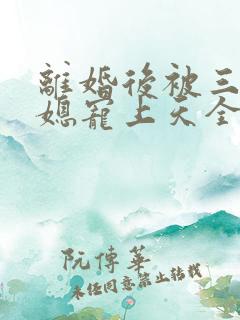 離婚後被三
媳寵上天全
阮傅華
未经同意禁止转载